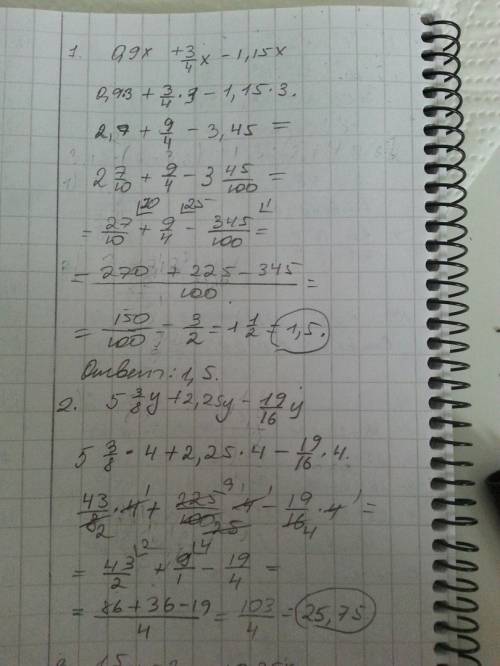 1. 0,9x + 3/4x - 1,15x
0,93 + 3/4 · 3 - 1,15 · 3.
2,7 + 9/4 - 3,45 =
2 7/10 + 9/4 - 3 45/100 =
= 27/10 + 9/4 - 345/100 =
= 270 + 225 - 345/100 =
= 150/100 = 3/2 = 1 1/2 = 1,5.
Ответ: 1,5.
2. 5 3/8y + 2,25y - 19/16y
5 3/8 · 4 + 2,25 · 4 - 19/16 · 4.
43/8 · 4 + 225/100 · 4 - 19/16 · 4 =
= 43/2 + 9/1 - 19/4 =
= 86 + 36 - 19/4 = 103/4 = 25,75